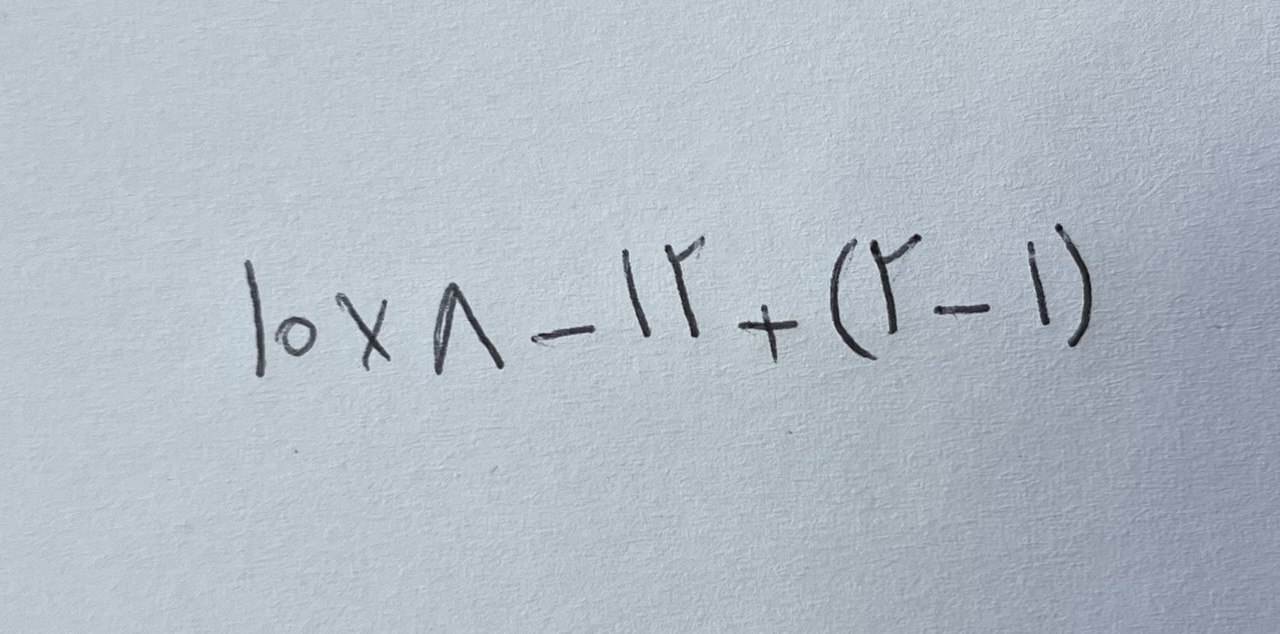 ۱۰×۸-۱۲+(۲-۱)